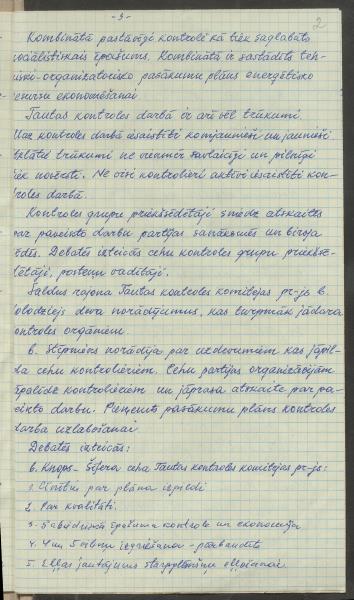 - 3 -
2
Kombinātā pastāvīgi kontrolē kā tiek saglabāts
sociālistiskais īpašums. Kombinātā ir sastādīts teh-
niski-organizatorisko pasākumu plāns enerģētisko
resursu ekonomēšanai
Tautas kontroles darbā ir arī vēl trūkumi.
Maz kontroles darbā iesaistīti komjaunieši un jaunieši
trūkumi ne vienmēr savlaicīgi un pilnīgi
tiek novērsti. Ne visi kontrolieri aktīvi iesaistīti kon-
troles darbā.
Kontroles grupu priekšsēdētāji sniedz atskaites
par paveikto darbu partijas sanāksmēs un biroja
sēdēs. Debatēs izteicās cehu kontroles grupu priekšsē-
dētāji, posteņu vadītāji.
Saldus rajona Tautas kontroles komitejas pr-js b.
deva norādījumus, kas turpmāk jādara
kontroles orgāniem.
b. norādīja par uzdevumiem kas jāpil-
da cehu kontrolieriem. Cehu partijas organizācijām
jāpalīdz kontrolieriem un jāprasa atskaite par pa-
veikto darbu. Pieņemts pasākumu plāns kontroles
darba uzlabošanai
Debatēs izteicās:
b. Knops - Šifera ceha Tautas kontroles komitejas pr-js:
1. Cīnības par plāna izpildi
2. Par kvalitāti.
3. Sabiedriskā īpašuma kontrole un ekonomija
4. 4 un 5 izgriešana - pārbaudīts
5. Eļļas jautājums starpgultņiem eļļošanai.